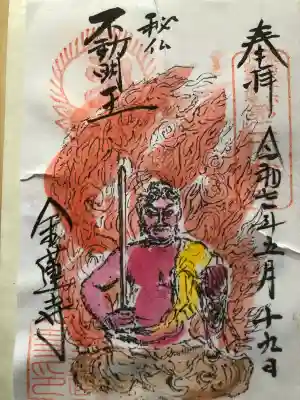 奉拝
令和二年五月十九日
秘仏
不動明王